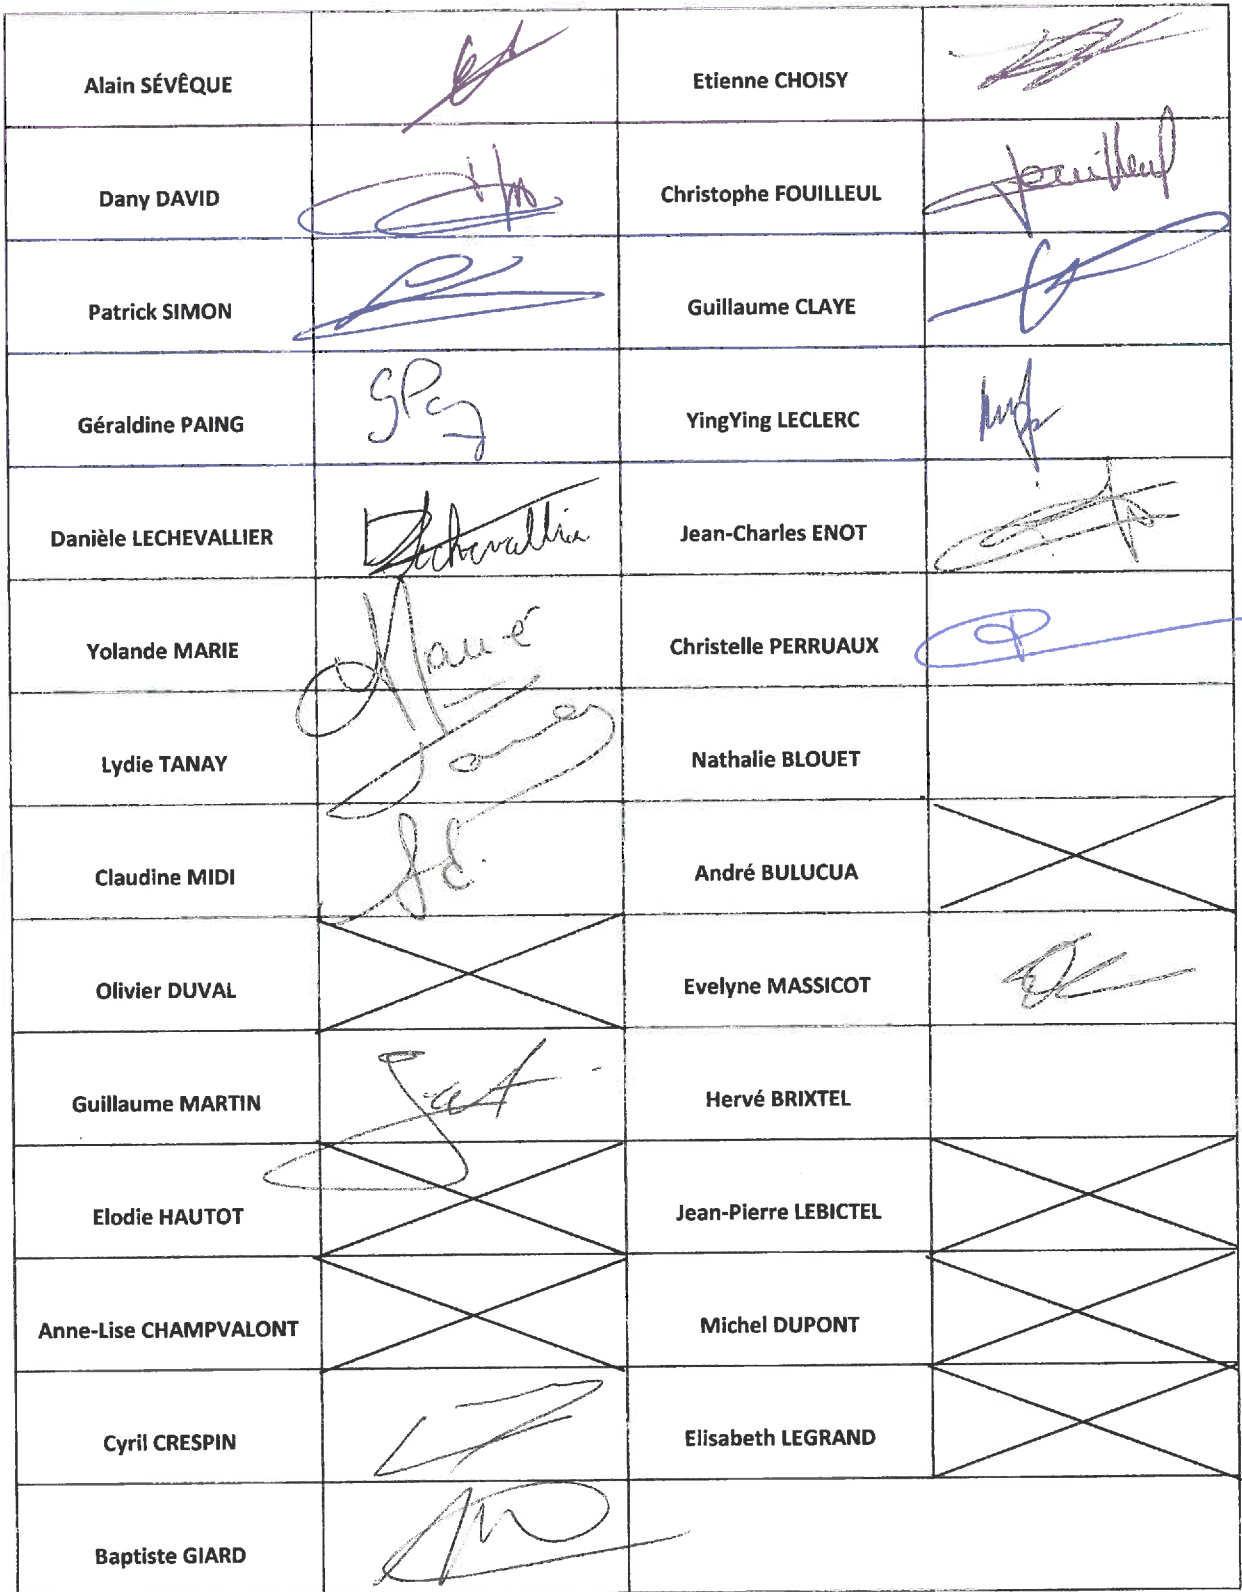 Alain SÉVÊQUE
Etienne CHOISY
Dany DAVID
Christophe FOUILLEUL
Fouilleul
Patrick SIMON
Guillaume CLAYE
Géraldine PAING
GPag
YingYing LECLERC
Danièle LECHEVALLIER
DLechevallier
Jean-Charles ENOT
Yolande MARIE
Marie
Christelle PERRUAUX
Lydie TANAY
Nathalie BLOUET
Claudine MIDI
André BULUCUA
Olivier DUVAL
Evelyne MASSICOT
Guillaume MARTIN
Hervé BRIXTEL
Elodie HAUTOT
Jean-Pierre LEBICTEL
Anne-Lise CHAMPVALONT
Michel DUPONT
Cyril CRESPIN
Elisabeth LEGRAND
Baptiste GIARD